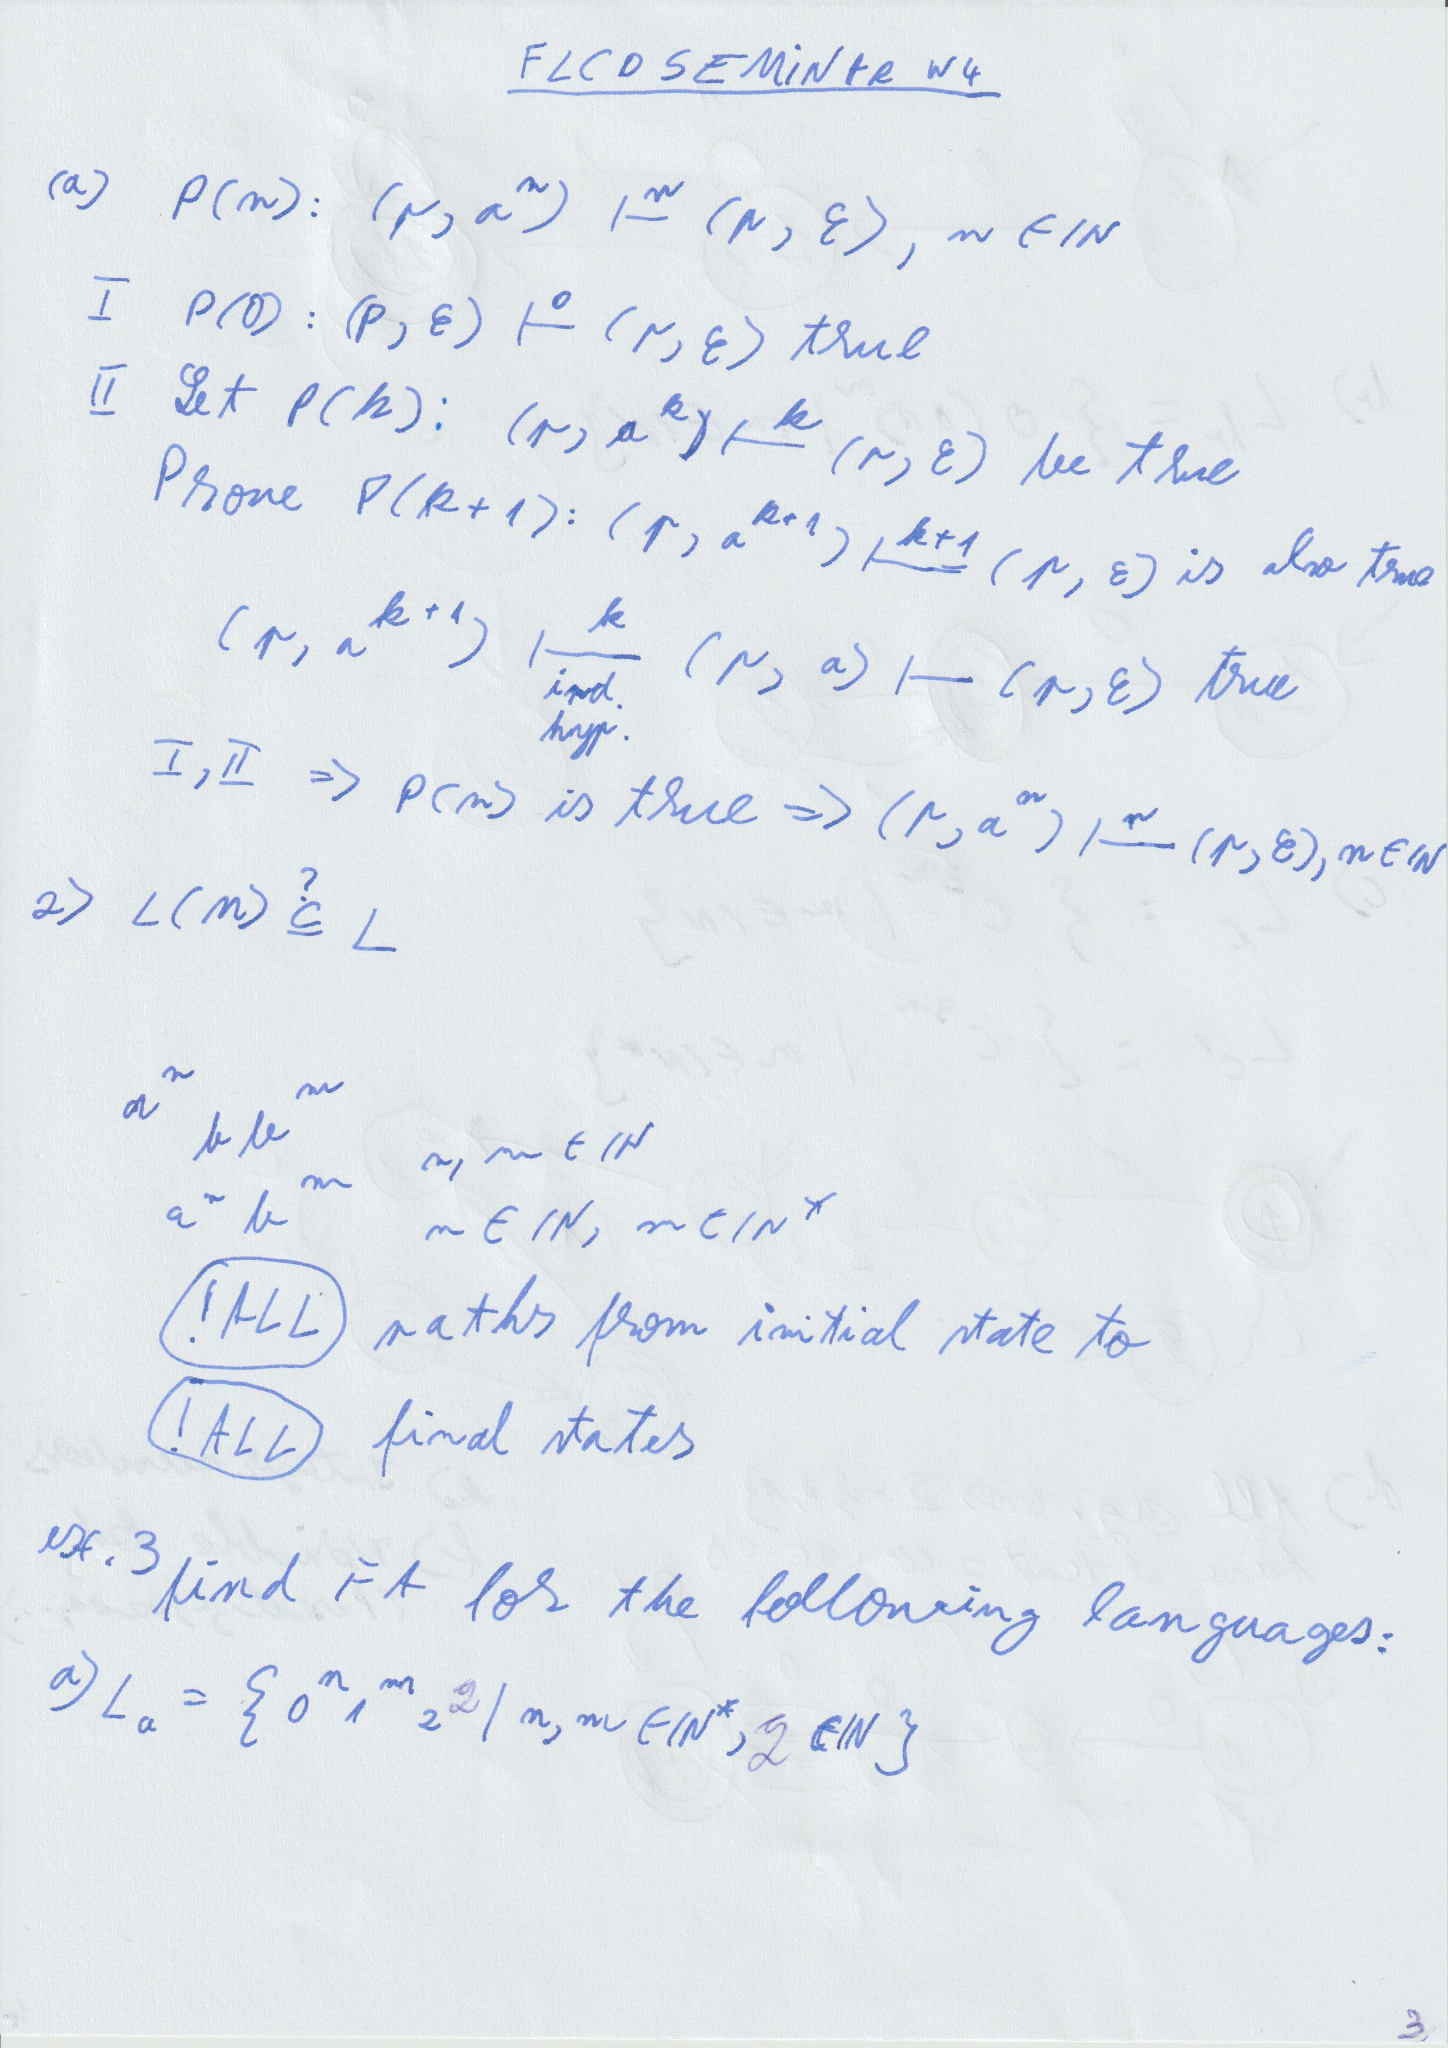 FLCD SEMINAR W4
(a) P(n): (p, aⁿ) ⊢ⁿ (p, ε), n ∈ ℕ
I P(0): (p, ε) ⊢⁰ (p, ε) true
II Let P(k): (p, aᵏ) ⊢ᵏ (p, ε) be true
Prove P(k+1): (p, aᵏ⁺¹) ⊢ᵏ⁺¹ (p, ε) is also true
(p, aᵏ⁺¹) ⊢ᵏ (p, a) ⊢ (p, ε) true
ind.
hyp.
I, II => P(n) is true => (p, aⁿ) ⊢ⁿ (p, ε), n ∈ ℕ
2) L(M) ⊆? L
aⁿ b bᵐ n, m ∈ ℕ
aⁿ bᵐ n ∈ ℕ, m ∈ ℕ*
!ALL paths from initial state to
!ALL final states
ex. 3 find FA for the following languages:
a) Lₐ = {0ⁿ 1ᵐ 2^q | n, m ∈ ℕ*, q ∈ ℕ}
3